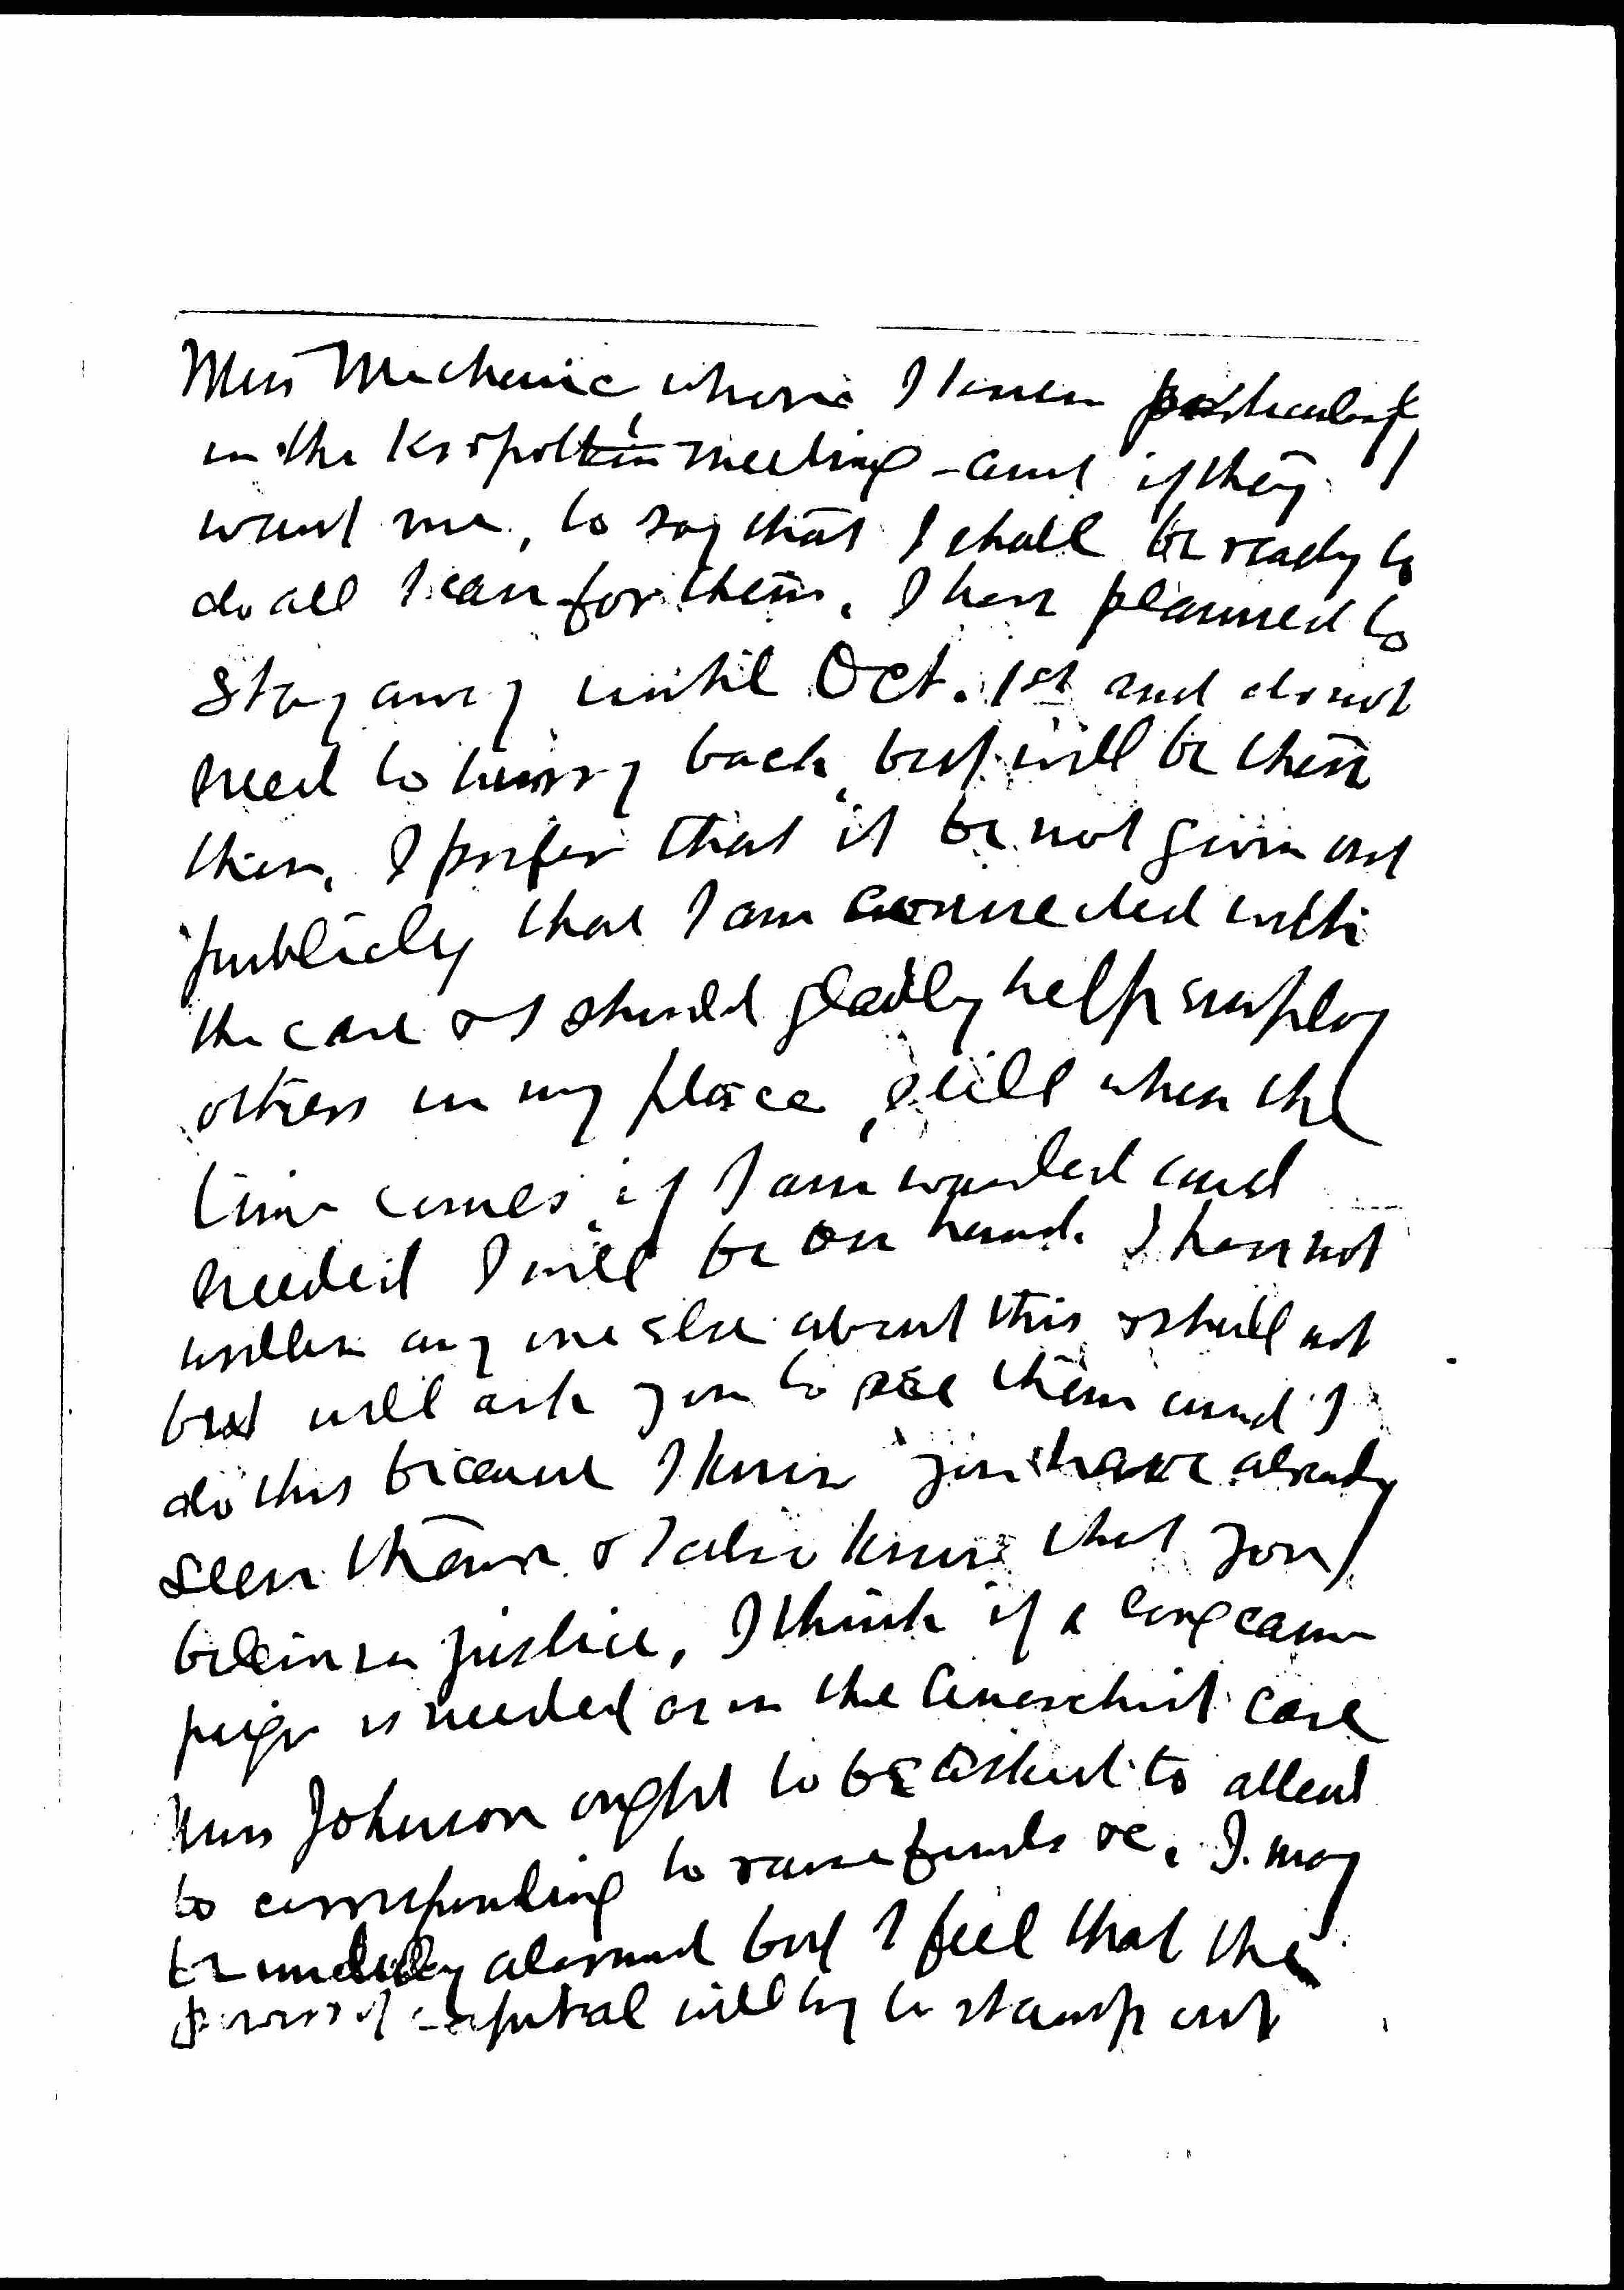 Miss Mechanic whom I knew particularly
in the Kropotkin meeting - and if they
want me, to say that I shall be ready to
do all I can for them. I have planned to
stay away until Oct. 1st and do not
need to hurry back, but will be there
then. I prefer that it be not given out
publicly that I am connected with
the case & I should gladly help employ
others in my place, still when the
time comes, if I am wanted and
needed I will be on hand. I have not
written any one else about this & shall not
but will ask you to see them and I
do this because I know you have already
seen them & I also know that you
believe in justice, I think if a long cam
paign is needed as in the Anarchist case
Miss Johnson ought to be asked to attend
to corresponding to raise funds &c. I may
be unduly alarmed but I feel that the
powers of capital will try to stamp out